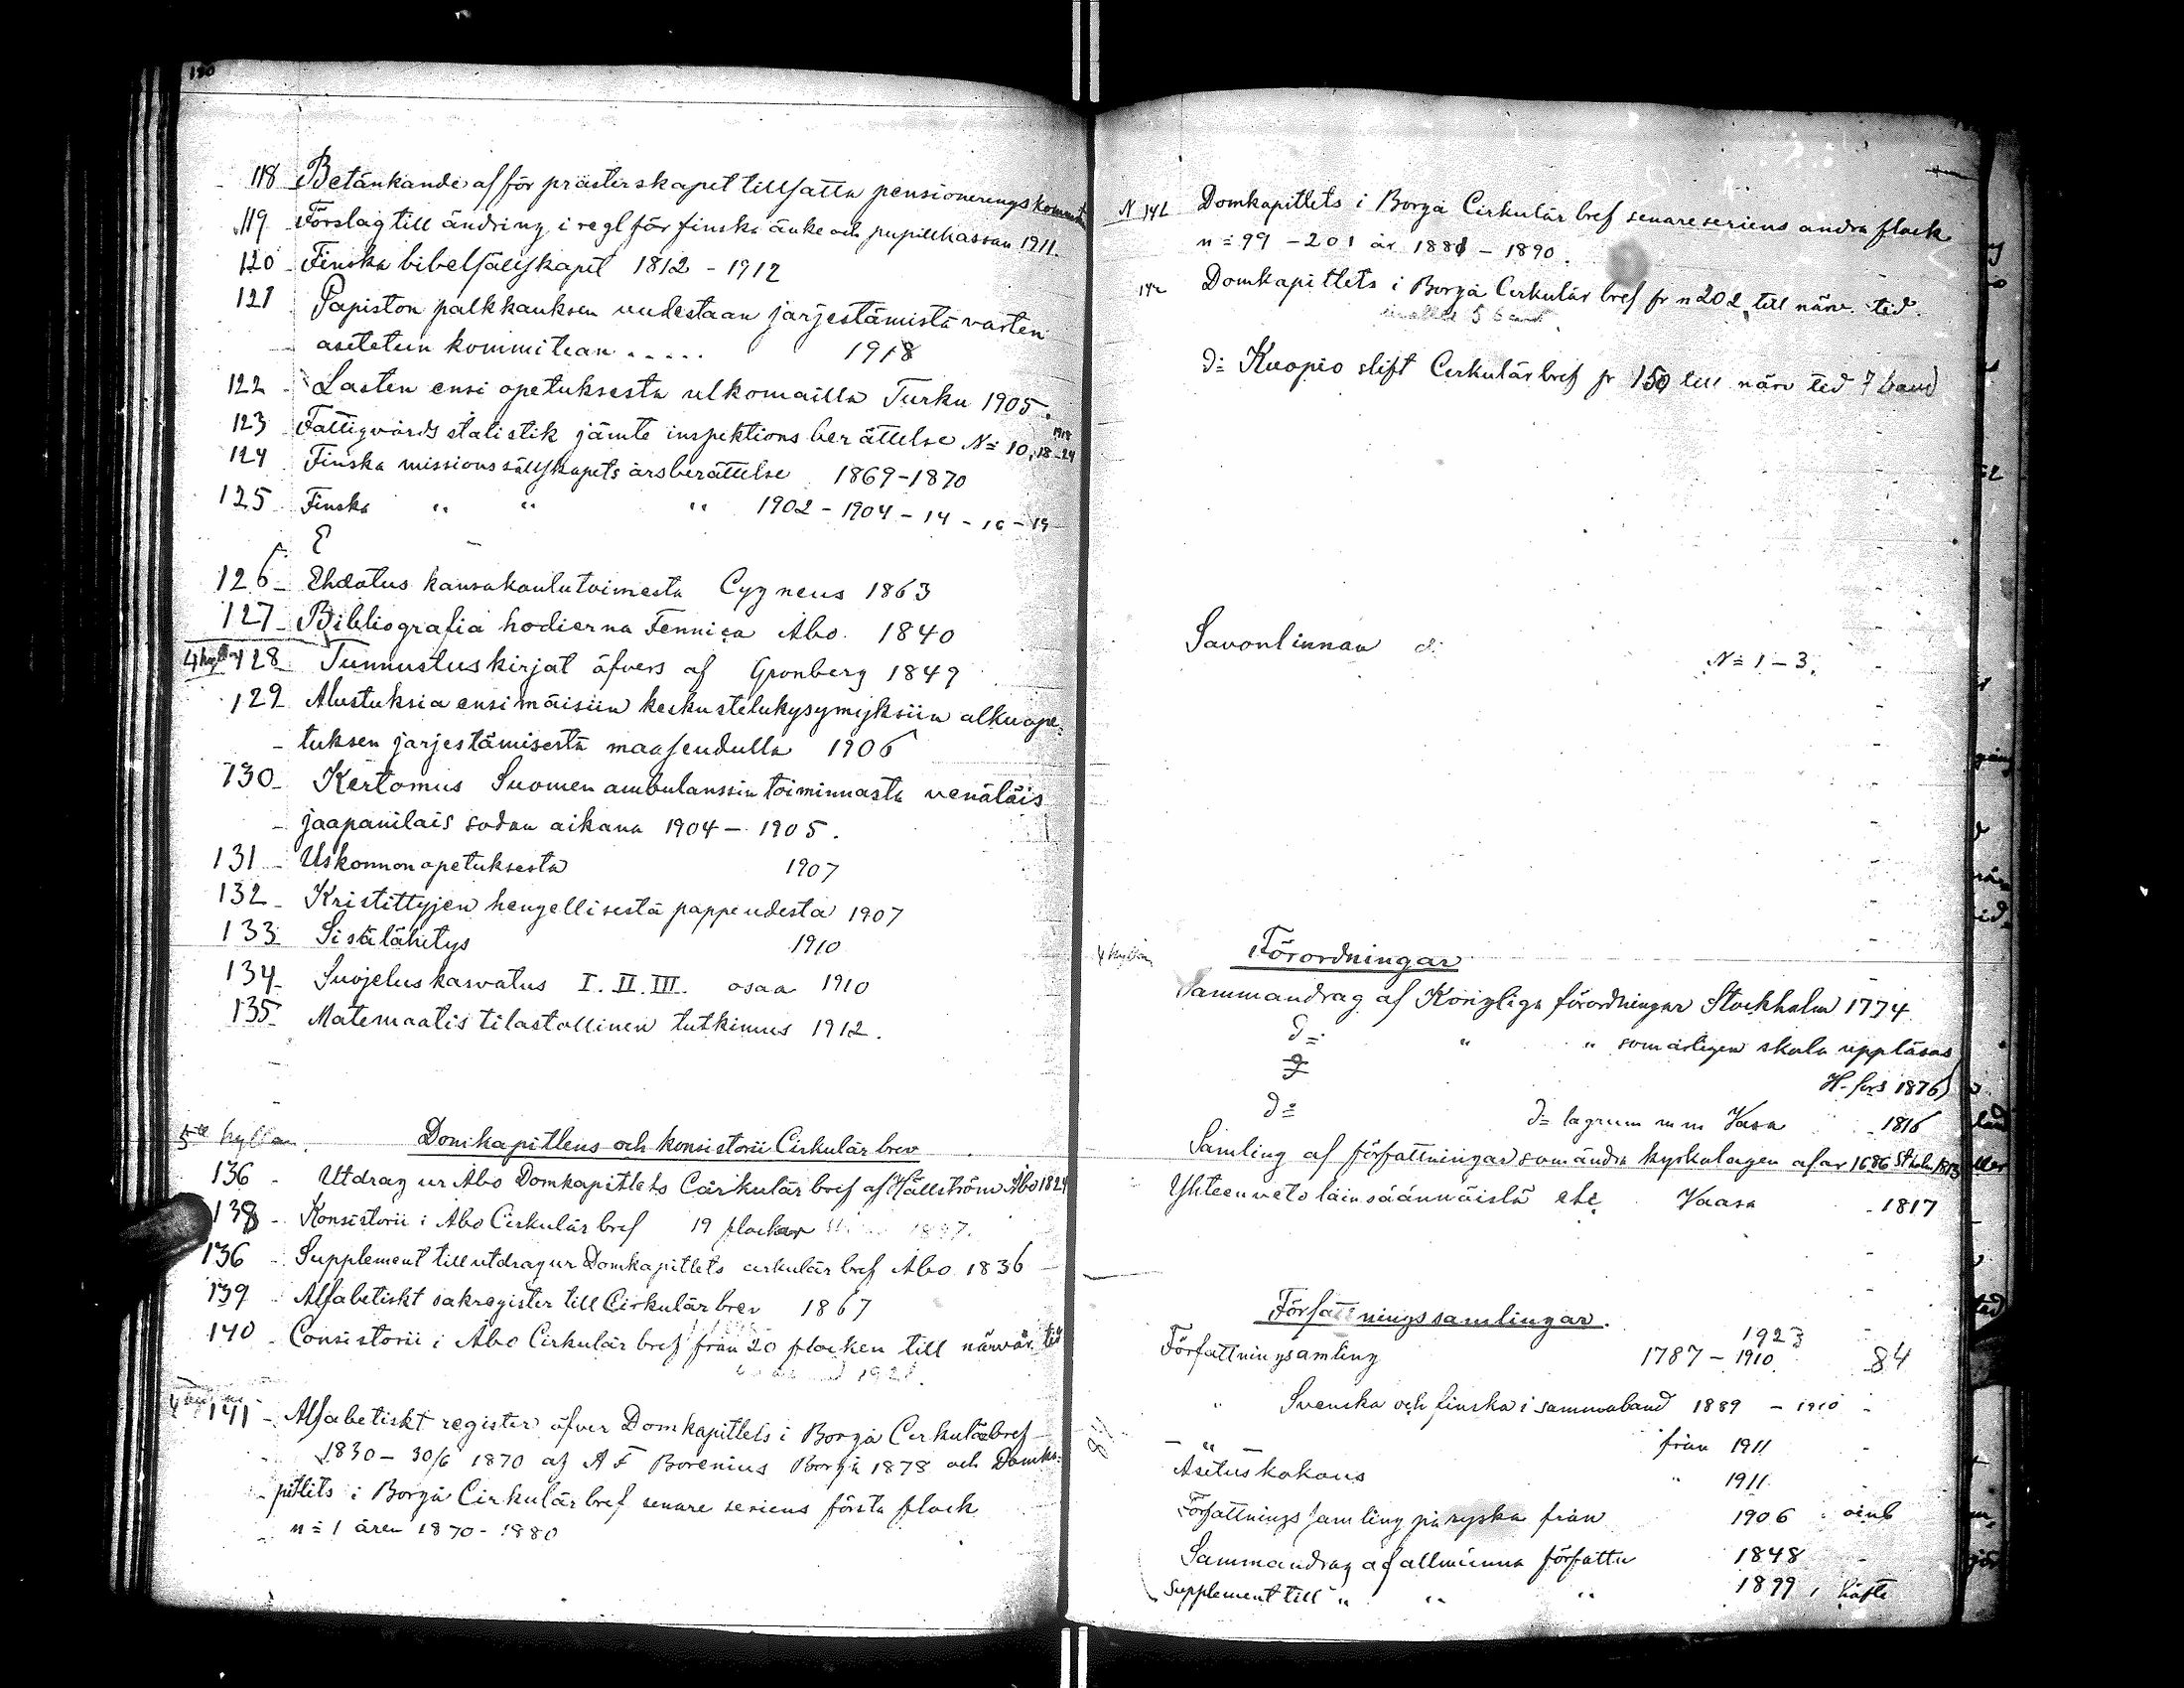 190
118 Betänkande af för prästerskapet tillsatta pensionerings
119 Förslag till ändring i regl för finska änke och pupillkassan 1911.
120 Finska bibelsällskapet 1812 - 1912
121 Papiston palkkauksen uudestaan järjestämistä varten
asetetun komitean ..... 1918
122 Lasten ensi opetuksesta ulkomailla Turku 1905.
123 Fattigvårds statistik jämte inspektions berättelse N= 10, 18-24
1918
124 Finska missionssällskapets årsberättelse 1869-1870
125 Finska " " " 1902 - 1904 - 14 - 16 - 19
E
126 Ehdotus kansakoulutoimesta Cygneus 1863
127 Bibliografia hodierna Fennica Åbo. 1840
128 Tunnustuskirjat öfvers af Gronberg 1849
129 Alustuksia ensimäisiin keskustelukysymyksiin alkuope=
tuksen järjestämisestä maaseudulla 1906
130 Kertomus Suomen ambulanssin toiminnasta venäläis
jaapanilais sodan aikana 1904 - 1905.
131 Uskonnonopetuksesta 1907
132 Kristittyjen hengellisestä pappeudesta 1907
133 Sisälähetys 1910
134 Suojeluskasvatus I. II. III. osaa 1910
135 Matemaatis tilastollinen tutkimus 1912.
5te hyllan. Domkapitlens och konsistorii Cirkulär brev
136 Utdrag ur Åbo Domkapitlets Cirkulär bref af Hällström Åbo 1824
138 Konsistorii i Åbo Cirkulär bref 19 flockar
136 Supplement till utdrag ur Domkapitlets cirkulär bref Åbo 1836
139 Alfabetiskt sakregister till Cirkulär brev 1867
140 Consistorii i Åbo Cirkulär bref från 20 flocken till närvar. tid
141 Alfabetiskt register öfver Domkapitlets i Borgå Cirkulärbref
1830 - 30/6 1870 af A F Borenius Borgå 1878 och Domka=
pitlets i Borgå Cirkulär bref senare seriens första flock
n= 1 åren 1870 - 1880
N 142 Domkapitlets i Borgå Cirkulär bref senare seriens andra flock
n= 99 - 201 år 1881 - 1890.
142 Domkapitlets i Borgå Cirkulär bref fr n 202 till närv. tid.
d= Kuopio stift Cirkulär bref fr 150 till närv tid 7 band
Savonlinnan d: N= 1 - 3.
4 hyllan Förordningar
Sammandrag af Kongliga förordningar Stockholm 1774
d= " " som årligen skola uppläsas
H-fors 1876
d= d= lagrum m m Vasa 1816
Samling af författningar som ändra kyrkolagen af år 1686 Stholm 1813
Yhteenveto lain säännöistä etc Vaasa 1817
Författningssamlingar.
1923
Författningsamling 1787 - 1910 84
" Svenska och finska i samma band 1889 - 1910
" från 1911
Asetuskokous " 1911
Författnings samling på ryska från 1906
Sammandrag af allmänna författ 1848
Supplement till " " " 1899 , häfte